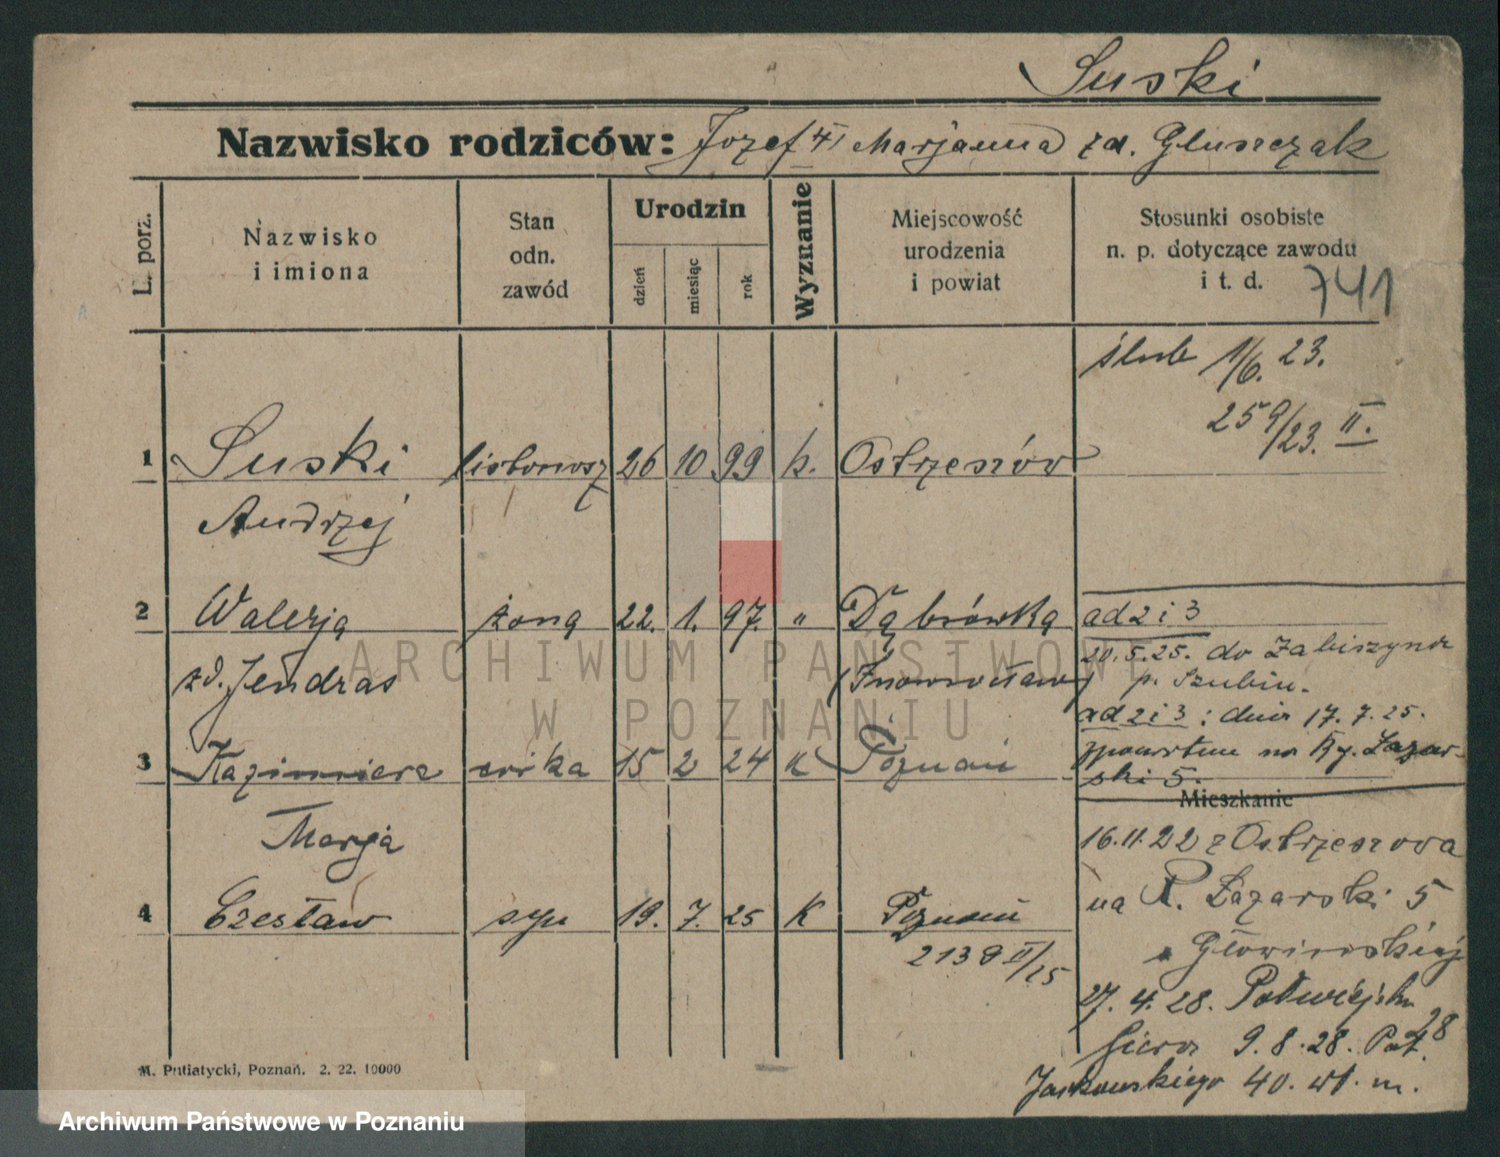 Suski
Nazwisko rodziców: Jozef i Marjanna zd. Głuszczak
L. porz.
Nazwisko
i imiona
Stan
odn.
zawód
Urodzin
dzień
miesiąc
rok
Wyznanie
Miejscowość
urodzenia
i powiat
Stosunki osobiste
n. p. dotyczące zawodu
i t. d.
741
ślub 1/6. 23.
259/23. II.
1 Suski listonosz 26 10 99 k. Ostrzeszów
Andrzej
2 Walerja żona 22. 1. 97. " Dąbrówka
zd. Jendras (Inowrocław)
ad 2 i 3
20.5.25. do Łabiszyna
p. Szubin.
ad 2 i 3 : dnia 17.7.25.
zpowrotem na Ry. Łazar-
ski 5.
3 Kazimiera córka 15 2 24 K Poznań
Marja
Mieszkanie
16.11.22 z Ostrzeszowa
na R. Łazarski 5
Głowinskiej
4 Czesław syn 19. 7. 25 K Poznań
2139 II/25
27. 4. 28.
9. 8. 28. Pat. 28
Jackowskiego 40. wł. m.
M. Putiatycki, Poznań. 2. 22. 10000
ARCHIWUM PAŃSTWOWE
W POZNANIU
Archiwum Państwowe w Poznaniu